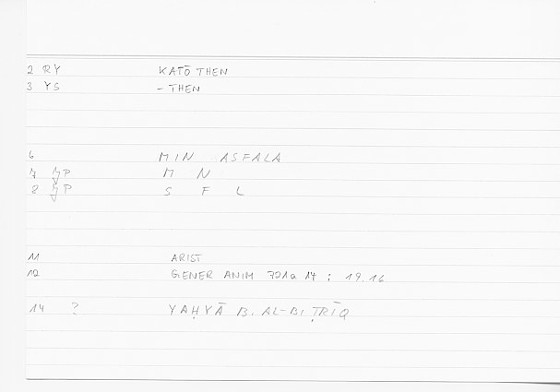 2 RY KATŌ THEN
3 YS - THEN
6 MIN ASFALA
7 M N
8 S F L
11 ARIST
12 GENER ANIM 721a 14 ; 19.16
14 ? YAḤYĀ B. AL-BIṬRĪQ